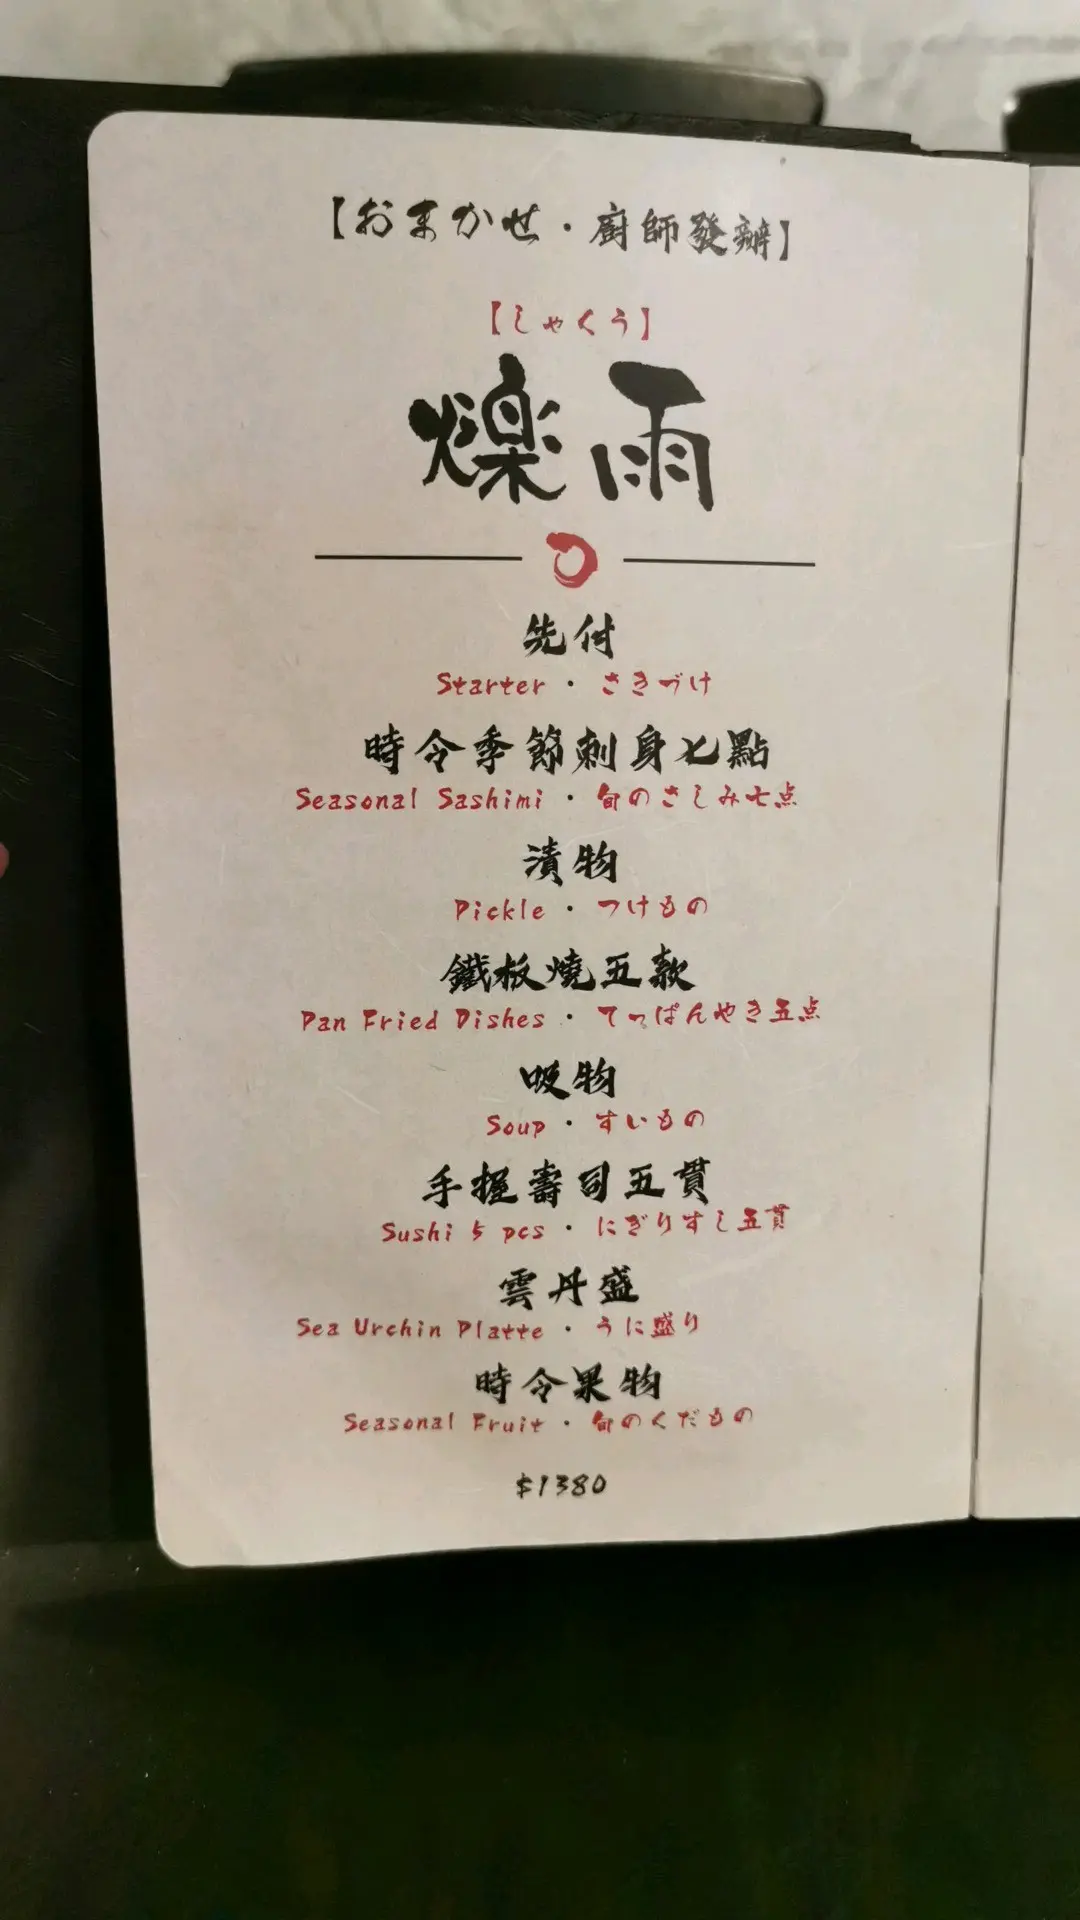 【おまかせ・廚師發辦】
【しゃくう】
爍雨
先付
Starter・さきづけ
時令季節刺身七點
Seasonal Sashimi・旬のさしみ七点
漬物
Pickle・つけもの
鐵板燒五款
Pan Fried Dishes・てっぱんやき五点
吸物
Soup・すいもの
手握壽司五貫
Sushi 5 pcs・にぎりすし五貫
雲丹盛
Sea Urchin Platte・うに盛り
時令果物
Seasonal Fruit・旬のくだもの
$1380